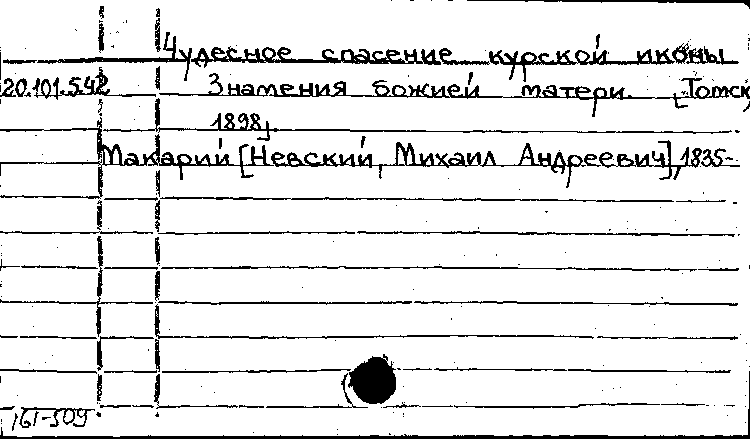 Чудесное спасение курской иконы
20.101.5.42 Знамения божией матери. [Томск,
1898].
Макарий [Невский, Михаил Андреевич], 1835-
161-509